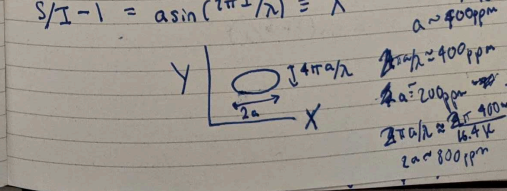 S/I - 1 = asin(2πI/λ) = X
a ~ 400ppm
Y
4πa/λ
2πa/λ ≈ 400ppm
2a
X
a ≈ 200ppm
2πa/λ ≈ 2π 400
16.4K
2a ~ 800ppm